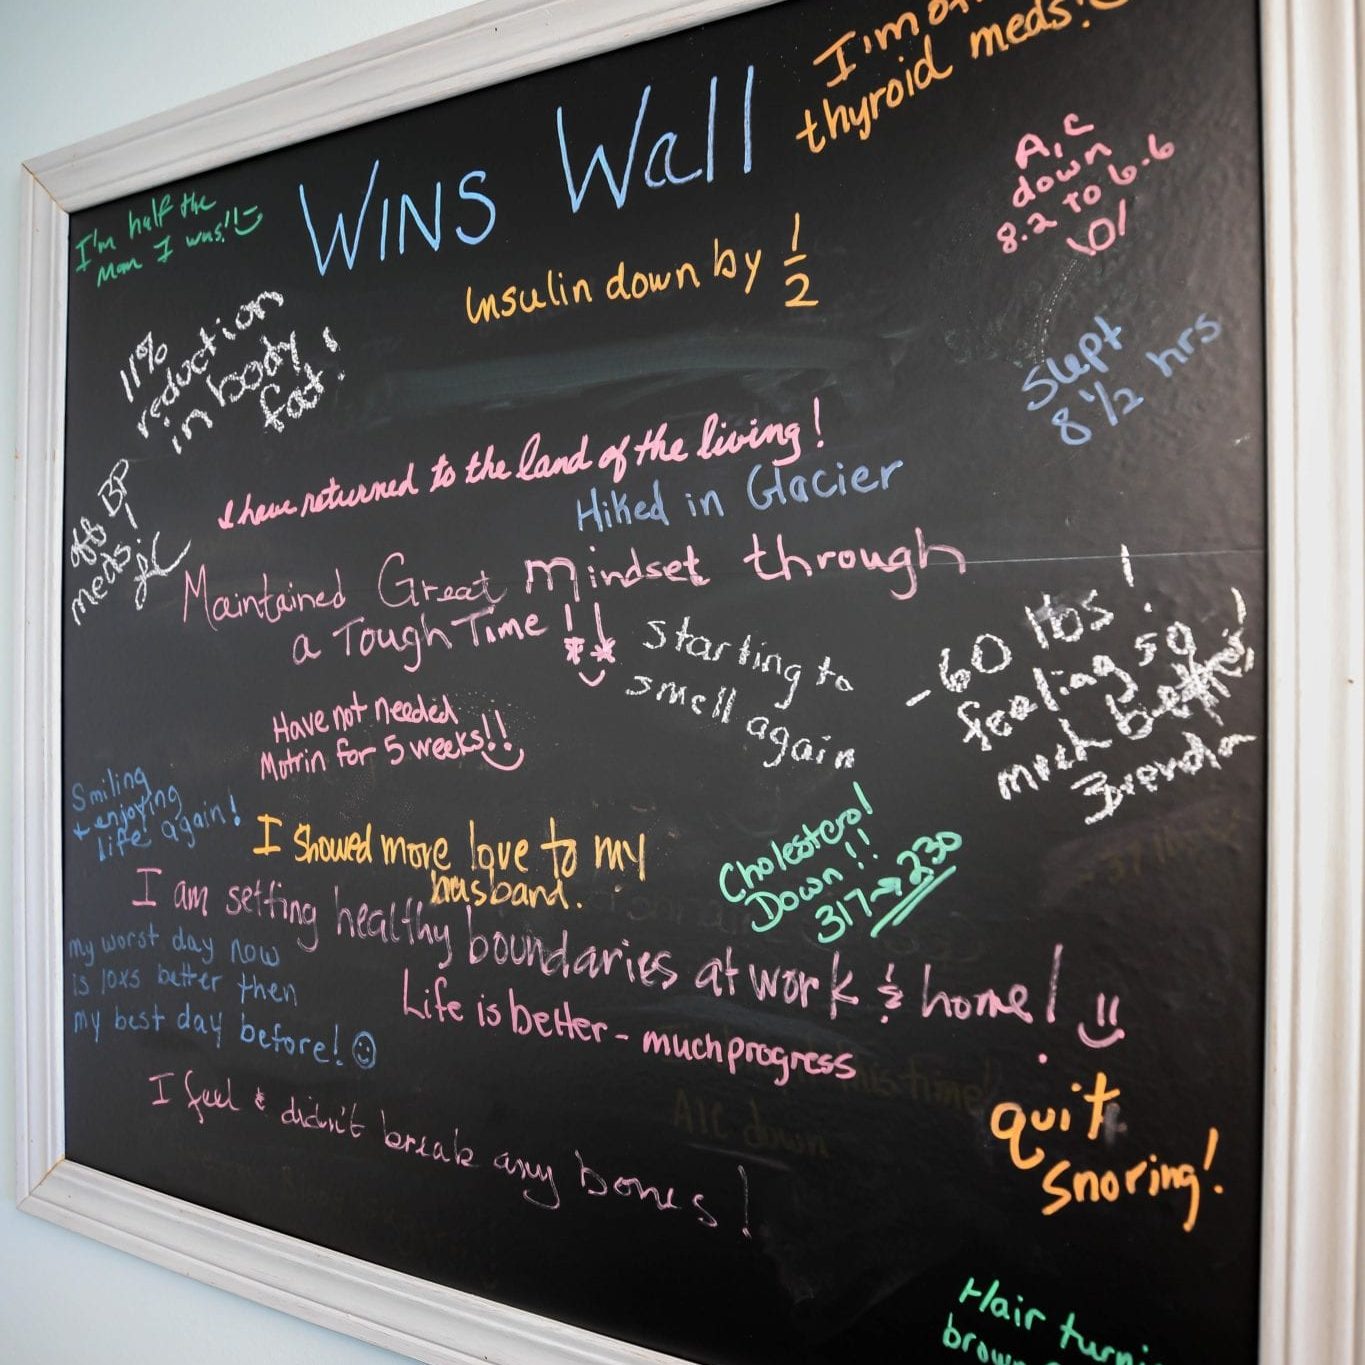 WINS Wall
I'm
thyroid meds!
I'm half the
man I was!!
A1C
down
8.2 to 6.6
\O/
Insulin down by 1/2
11%
reduction
in body
fat!
Slept
8 1/2 hrs
I have returned to the land of the living!
Hiked in Glacier
off BP
meds!
Maintained Great mindset through
a Tough Time!!
starting to
smell again
- 60 lbs!
feeling so
much better,
Brenda
Have not needed
Motrin for 5 weeks!!
Smiling
+ enjoying
life again!
I Showed more love to my
husband.
Cholesterol
Down!!
317→230
I am setting healthy boundaries at work & home!
my worst day now
is 10xs better then
my best day before! ☺
Life is better - much progress
I feel & didn't break any bones!
quit
snoring!
Hair
brown
A1C down